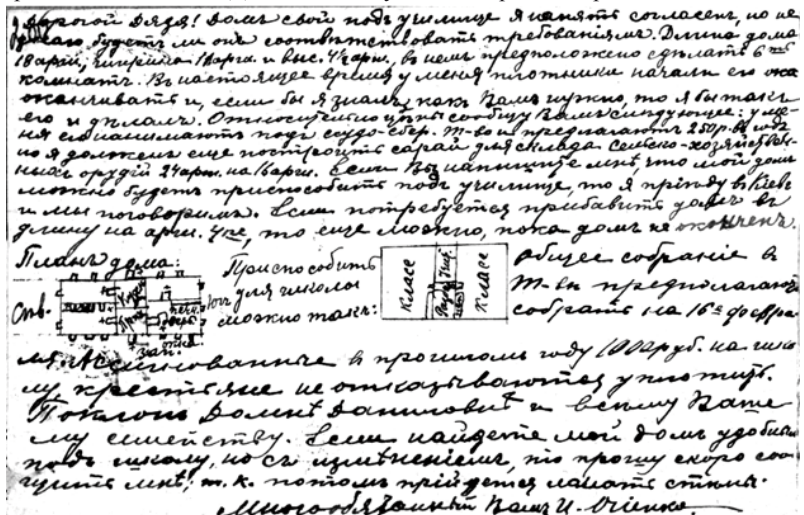 Дорогой Дядя! Домъ свой подъ училище я нанять согласенъ, но не
знаю будетъ ли онъ соотвѣтствовать требованіямъ. Длина дома
18 арш., ширина 12 арш. и выс. 4½ арш., въ немъ предположено сдѣлать 6ть
комнатъ. Въ настоящее время у меня плотники начали его
оканчивать и, если бы я зналъ, какъ Вамъ нужно, то я бы такъ
его и дѣлалъ. Относительно цѣны сообщу Вамъ слѣдующее: у ме-
ня его нанимаютъ подъ ссудо-сбер. Т-во и предлагаютъ 250 р. въ годъ
но я долженъ еще построить сарай для склада сельско-хозяйствен-
ныхъ орудій 24 арш. на 12 арш. Если Вы напишите мнѣ, что мой домъ
можно будетъ приспособить подъ училище, то я пріѣду въ Кіевъ
и мы поговоримъ. Если потребуется прибавить домъ въ
длину на арш. , то еще можно, пока домъ не оконченъ.
Планъ дома:
Ств.
зап.
Приспособить
для школы
можно такъ:
Классъ
Классъ
Общее собраніе в
Т-вѣ предполагаютъ
собрать на 16е февра-
ля. Ассигнованные в прошломъ году 100 руб. на шко-
лу крестьяне не отказываются уплотить.
Поклонъ Домнѣ Даниловнѣ и всему Ваше
му семейству. Если найдете мой домъ удобнымъ
подъ школу, но съ измѣненіемъ, то прошу скоро соо-
щить мнѣ, т. к. потомъ прійдется ламать стѣны.
Многообязанный Вамъ И. Огіенко.